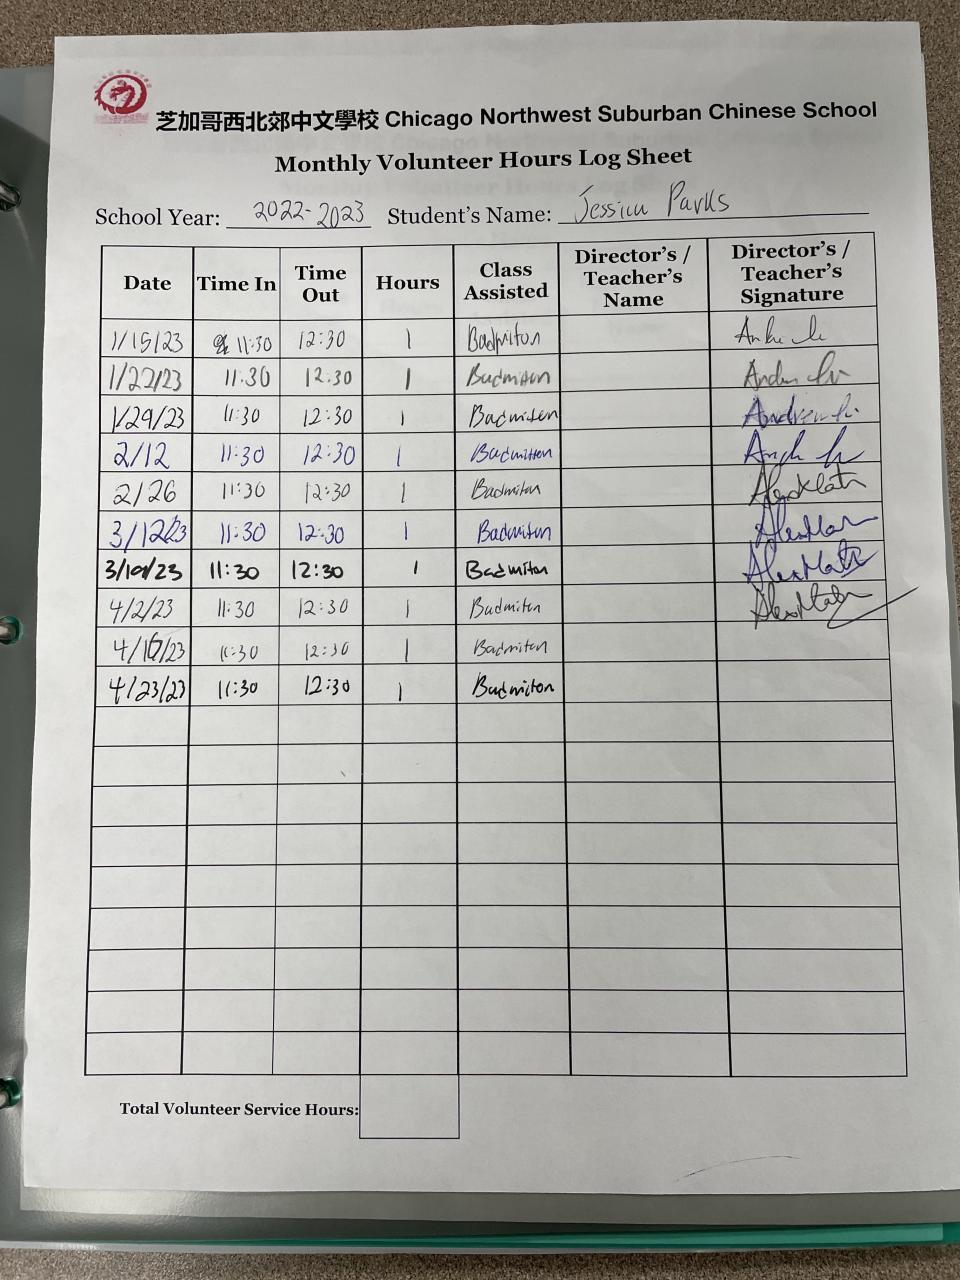 芝加哥西北郊中文學校 Chicago Northwest Suburban Chinese School
Monthly Volunteer Hours Log Sheet
School Year: 2022-2023 Student's Name: Jessica Parks
Date Time In Time Out Hours Class Assisted Director's / Teacher's Name Director's / Teacher's Signature
1/15/23 11:30 12:30 1 Badmiton
1/22/23 11:30 12:30 1 Badmiton
1/29/23 11:30 12:30 1 Badmiten
2/12 11:30 12:30 1 Badmitten
2/26 11:30 12:30 1 Badmiton
3/12/23 11:30 12:30 1 Badmiton
3/19/23 11:30 12:30 1 Badmiton
4/2/23 11:30 12:30 1 Badmiton
4/16/23 11:30 12:30 1 Badmiton
4/23/23 11:30 12:30 1 Badmiton
Total Volunteer Service Hours: